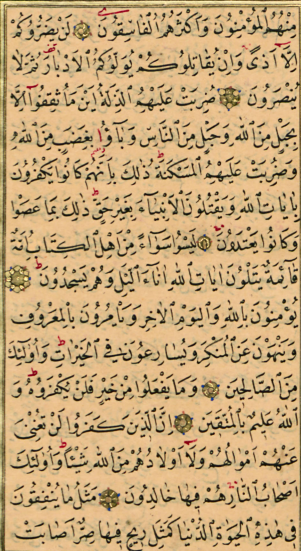 مِنْهُمُ الْمُؤْمِنُونَ وَاَكْثَرُهُمُ الْفَاسِقُونَ لَنْ يَضُرُّوكُمْ
اِلَّا اَذًى وَاِنْ يُقَاتِلُوكُمْ يُوَلُّوكُمُ الْاَدْبَارَ ثُمَّ لَا
يُنْصَرُونَ ضُرِبَتْ عَلَيْهِمُ الذِّلَّةُ اَيْنَ مَا ثُقِفُوا اِلَّا
بِحَبْلٍ مِنَ اللّٰهِ وَحَبْلٍ مِنَ النَّاسِ وَبَاؤُا بِغَضَبٍ مِنَ اللّٰهِ
وَضُرِبَتْ عَلَيْهِمُ الْمَسْكَنَةُ ذٰلِكَ بِاَنَّهُمْ كَانُوا يَكْفُرُونَ
بِاٰيَاتِ اللّٰهِ وَيَقْتُلُونَ الْاَنْبِيَاءَ بِغَيْرِ حَقٍّ ذٰلِكَ بِمَا عَصَوْا
وَكَانُوا يَعْتَدُونَ لَيْسُوا سَوَاءً مِنْ اَهْلِ الْكِتَابِ اُمَّةٌ
قَائِمَةٌ يَتْلُونَ اٰيَاتِ اللّٰهِ اٰنَاءَ الَّيْلِ وَهُمْ يَسْجُدُونَ
يُؤْمِنُونَ بِاللّٰهِ وَالْيَوْمِ الْاٰخِرِ وَيَاْمُرُونَ بِالْمَعْرُوفِ
وَيَنْهَوْنَ عَنِ الْمُنْكَرِ وَيُسَارِعُونَ فِي الْخَيْرَاتِ وَاُولٰئِكَ
مِنَ الصَّالِحِينَ وَمَا يَفْعَلُوا مِنْ خَيْرٍ فَلَنْ يُكْفَرُوهُ وَ
اللّٰهُ عَلِيمٌ بِالْمُتَّقِينَ اِنَّ الَّذِينَ كَفَرُوا لَنْ تُغْنِيَ
عَنْهُمْ اَمْوَالُهُمْ وَلَا اَوْلَادُهُمْ مِنَ اللّٰهِ شَيْئًا وَاُولٰئِكَ
اَصْحَابُ النَّارِ هُمْ فِيهَا خَالِدُونَ مَثَلُ مَا يُنْفِقُونَ
فِي هٰذِهِ الْحَيٰوةِ الدُّنْيَا كَمَثَلِ رِيحٍ فِيهَا صِرٌّ اَصَابَتْ